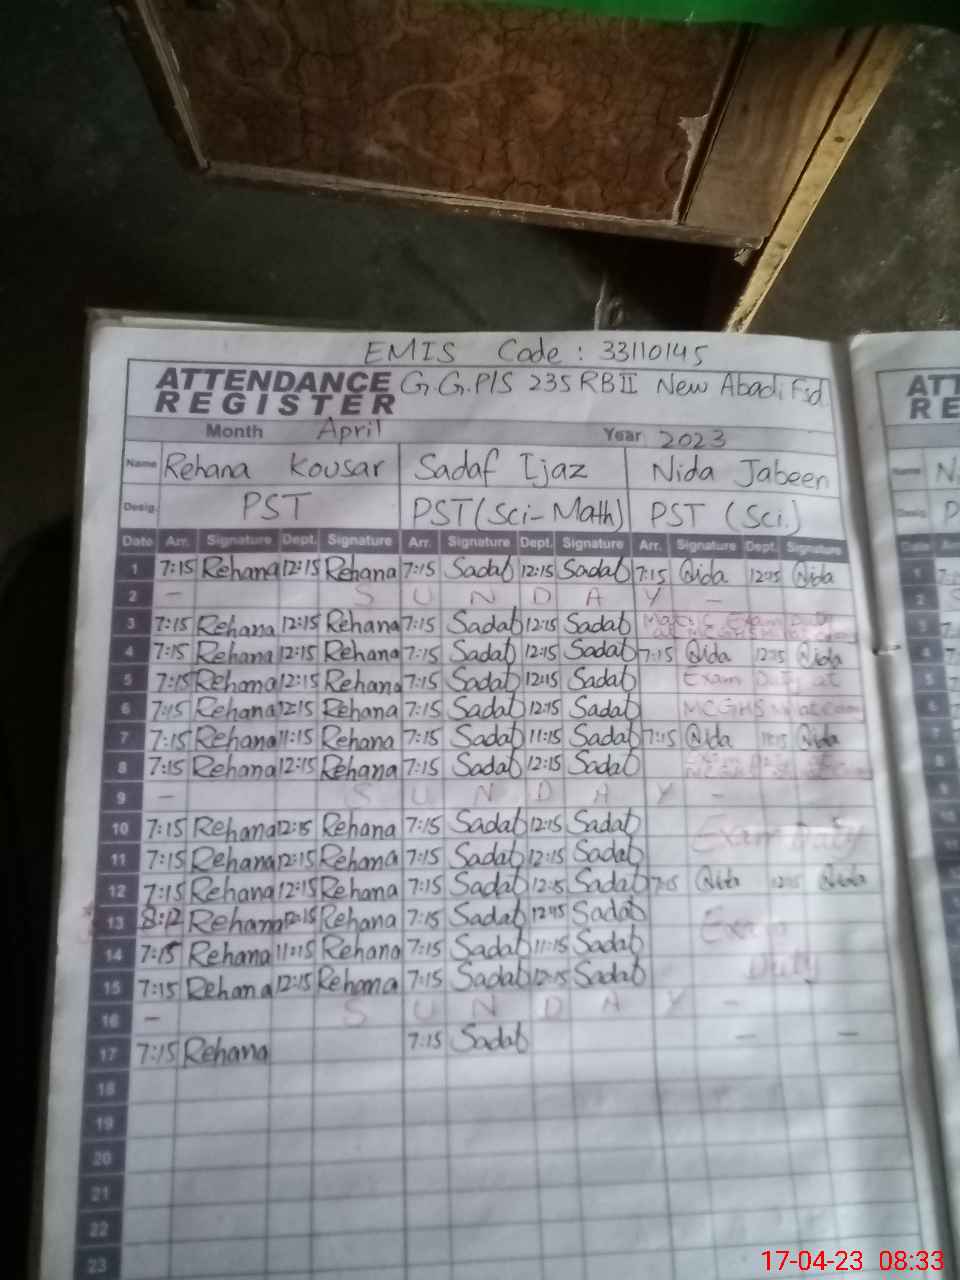 EMIS Code : 33110145
ATTENDANCE REGISTER G.G.P/S 235 RB II New Abadi Fsd.
Month April Year 2023
Name Rehana Kousar Sadaf Ijaz Nida Jabeen
Desig. PST PST(Sci-Math) PST (Sci.)
Date Arr. Signature Dept. Signature Arr. Signature Dept. Signature Arr. Signature Dept. Signature
1 7:15 Rehana 12:15 Rehana 7:15 Sadaf 12:15 Sadaf 7:15 Nida 12:15 Nida
2 - S U N D A Y -
3 7:15 Rehana 12:15 Rehana 7:15 Sadaf 12:15 Sadaf Exam Duty at MCGHS
4 7:15 Rehana 12:15 Rehana 7:15 Sadaf 12:15 Sadaf 7:15 Nida 12:15 Nida
5 7:15 Rehana 12:15 Rehana 7:15 Sadaf 12:15 Sadaf Exam Duty at
6 7:15 Rehana 12:15 Rehana 7:15 Sadaf 12:15 Sadaf MCGHS
7 7:15 Rehana 11:15 Rehana 7:15 Sadaf 11:15 Sadaf 7:15 Nida 11:15 Nida
8 7:15 Rehana 12:15 Rehana 7:15 Sadaf 12:15 Sadaf Exam Duty at MCGHS
9 - S U N D A Y -
10 7:15 Rehana 12:15 Rehana 7:15 Sadaf 12:15 Sadaf Exam Duty
11 7:15 Rehana 12:15 Rehana 7:15 Sadaf 12:15 Sadaf
12 7:15 Rehana 12:15 Rehana 7:15 Sadaf 12:15 Sadaf 7:15 Nida 12:15 Nida
13 8:12 Rehana 12:15 Rehana 7:15 Sadaf 12:15 Sadaf Exam
14 7:15 Rehana 11:15 Rehana 7:15 Sadaf 11:15 Sadaf
15 7:15 Rehana 12:15 Rehana 7:15 Sadaf 12:15 Sadaf Duty
16 - S U N D A Y -
17 7:15 Rehana 7:15 Sadaf - -
18
19
20
21
22
23
17-04-23 08:33